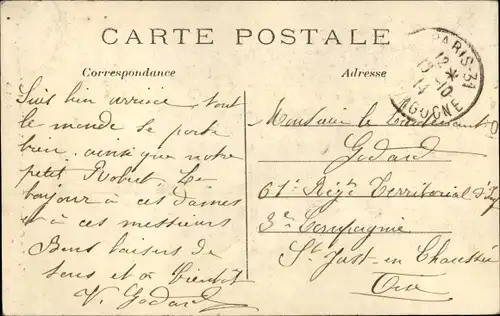 CARTE POSTALE
Correspondance
Adresse
PARIS 31
12 *
13-10
14
Suis bien arrivée tout
le monde se porte
bien, ainsi que notre
petit Robert. Le
bonjour à ces dames
et à ces messieurs
Bons baisers de
tous et à bientôt
V. Godard
Monsieur le
Godard
61e Régt Territorial d'Inf
3e Compagnie
St Just-en Chaussée
Oise